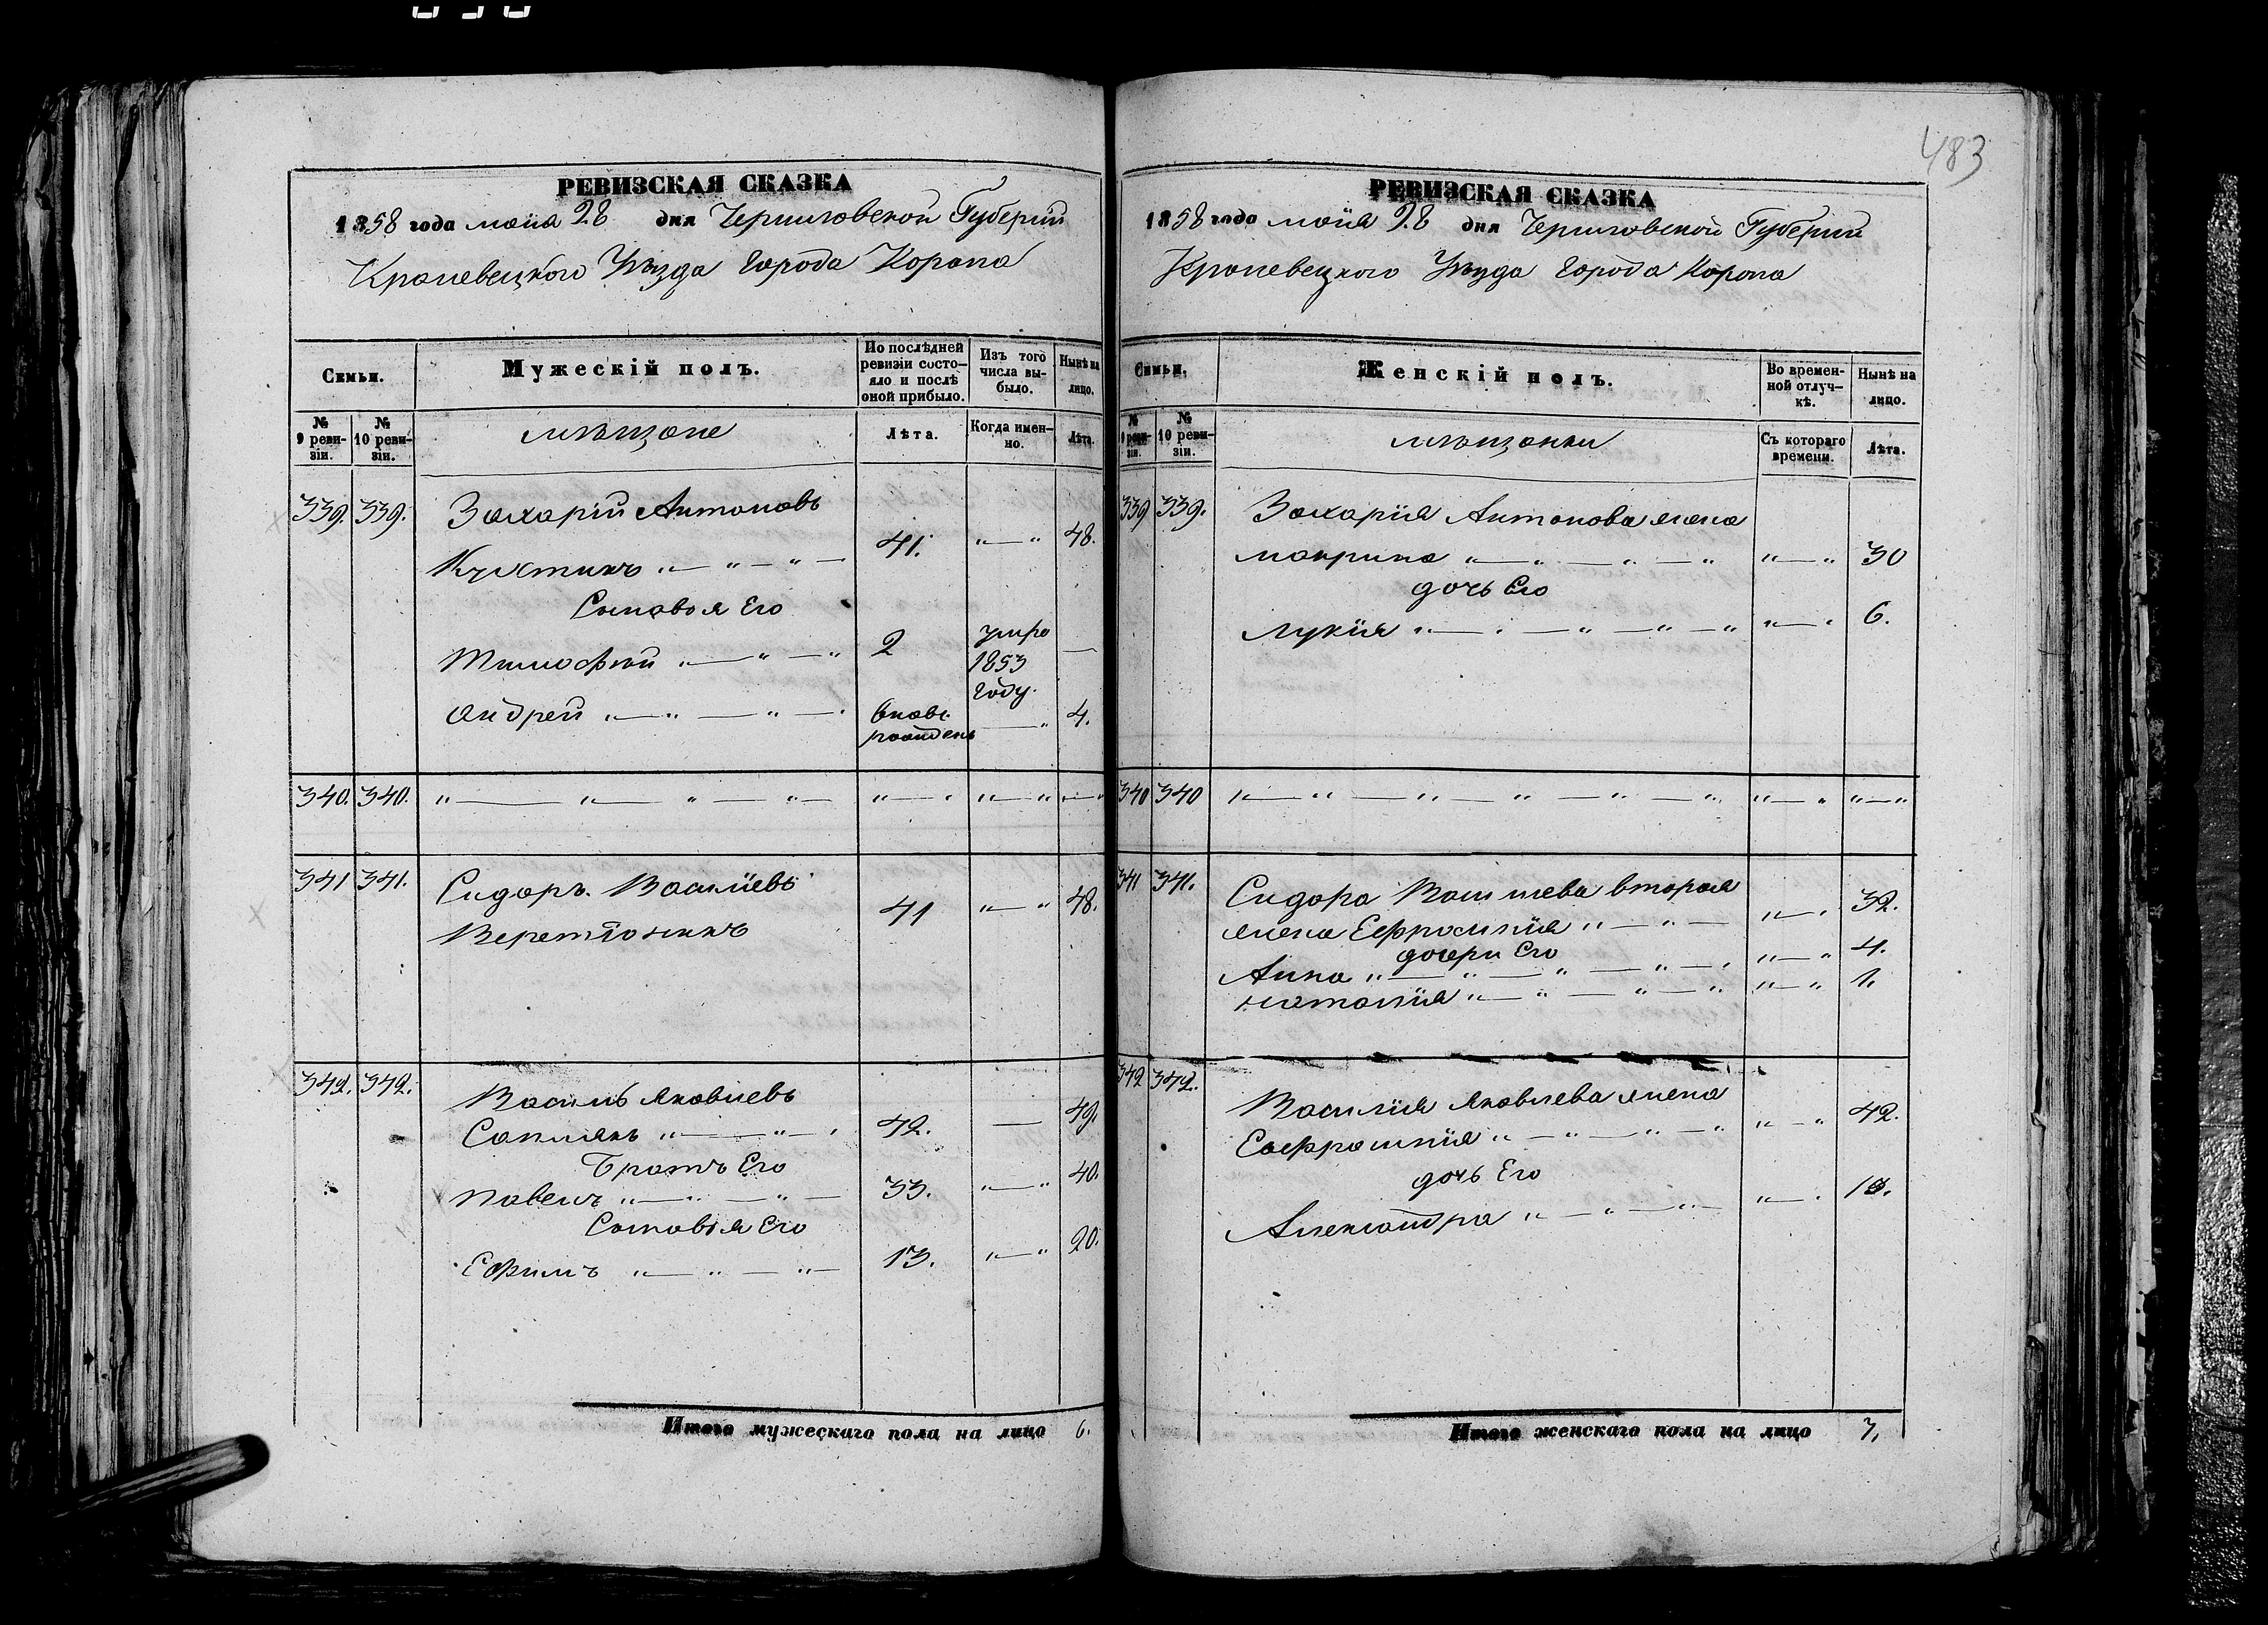 483
РЕВИЗСКАЯ СКАЗКА
1858 года маія 28 дня Черниговской Губерніи
Кролевецкого Уѣзда Города Коропа
Семьи.
Мужескій полъ.
По послѣдней ревизіи состо-яло и послѣ оной прибыло.
Изъ того числа вы-было.
Нынѣ на лицо.
№ 9 реви-зіи.
№ 10 реви-зіи.
мѣщане
Лѣта.
Когда имен-но.
Лѣта.
339. 339. Захарій Антоновъ
41. „—„ 48.
Сыновья Его
Тимофѣй „—„—„ 2 умре 1853 году. —
Андрей „—„—„—„ вновь рожденъ —„ 4.
340. 340. „—„—„—„— „—„ „—„ „—„
341 341. Сидоръ Васильевъ
41 „—„ 48.
342. 342. Василь Яковлевъ
42. — 49.
Братъ Его
Павелъ „—„—„— 33. „—„ 40.
Сыновья Его
Ефимъ „—„—„— 13. „—„ 20.
Итого мужескаго пола на лицо 6.
РЕВИЗСКАЯ СКАЗКА
1858 года маія 28 дня Черниговской Губерніи
Кролевецкого Уѣзда Города Коропа
Семьи.
Женскій полъ.
Во времен-ной отлуч-кѣ.
Нынѣ на лицо.
№ 9 реви-зіи.
№ 10 реви-зіи.
мѣщанки
Съ котораго времени.
Лѣта.
339 339. Захарія Антонова жена
Маврина „—„—„—„ „—„ 30
дочь Его
Лукія „—„—„—„—„ „—„ 6.
340 340 „—„—„—„—„—„ „—„ „—„
341 341. Сидора Васильева вторая
жена Ефросинія „—„— „—„ 32.
дочери Его
Анна „—„—„—„—„ „—„ 4.
Наталія „—„—„—„ „—„ 1.
342 342. Василія Яковлева жена
Евфросинія „—„—„—„ „—„ 42.
дочь Его
Александра „—„—„— „—„
Итого женскаго пола на лицо 7.